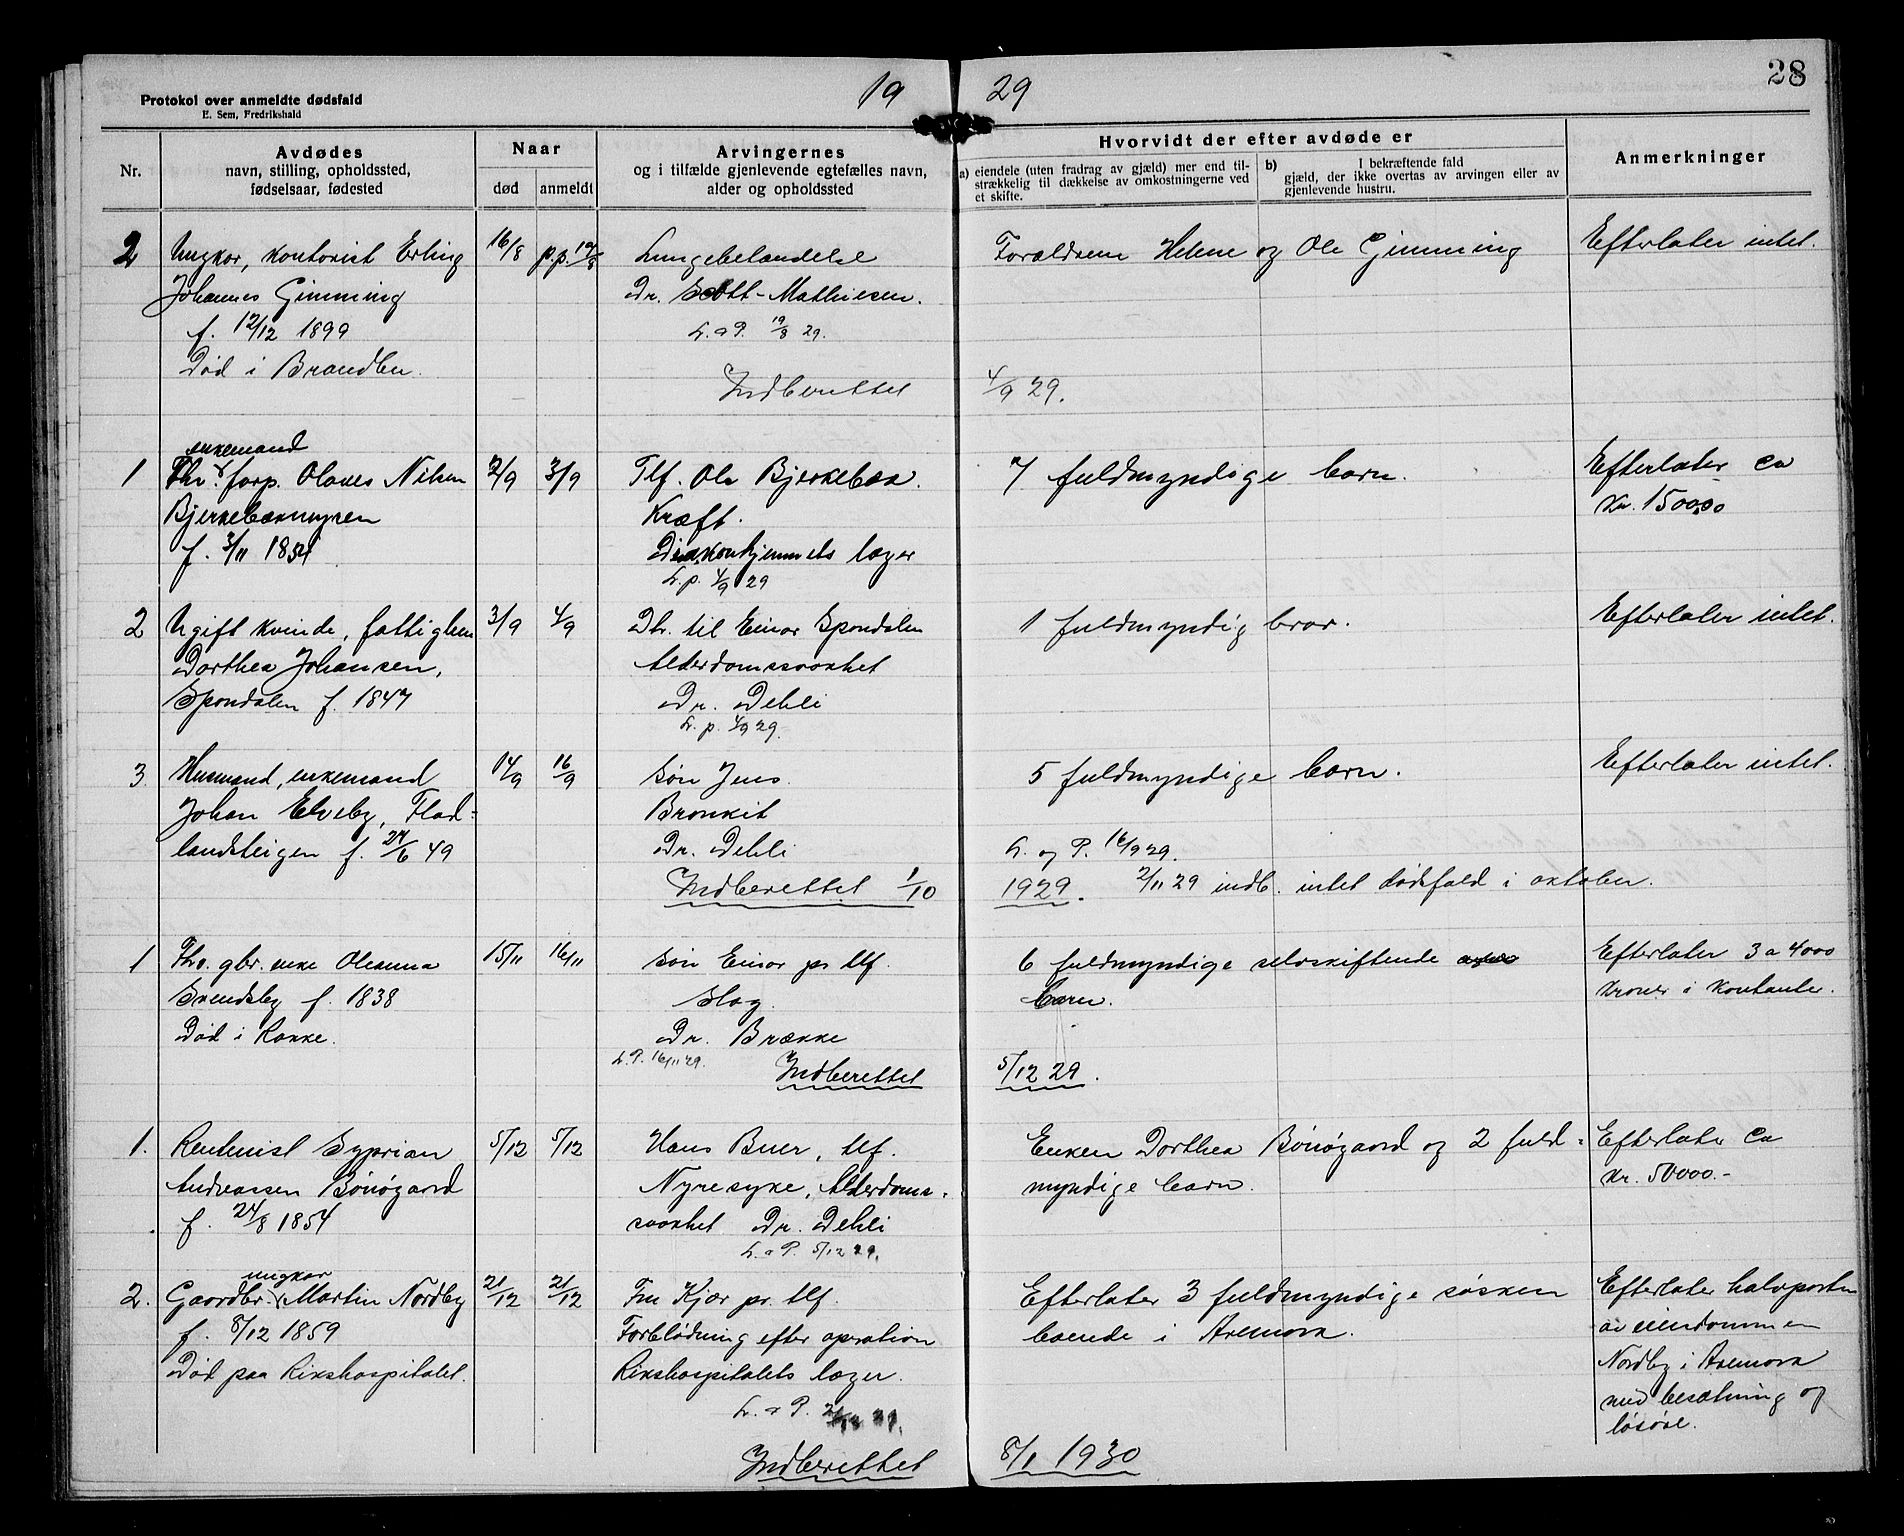 28
19 29
Protokol over anmeldte dødsfald
E. Sem, Fredrikshald
Nr.
Avdødes
navn, stilling, opholdssted,
fødselsaar, fødested
Naar
død
anmeldt
Arvingernes
og i tilfælde gjenlevende egtefælles navn,
alder og opholdssted
Hvorvidt der efter avdøde er
a) eiendele (uten fradrag av gjæld) mer end til-
strækkelig til dækkelse av omkostningerne ved
et skifte.
b) I bekræftende fald
gjæld, der ikke overtas av arvingen eller av
gjenlevende hustru.
Anmerkninger
2 Ungkar, kontorist Erling 16/8 p.p. 19/8 Lungebetændelse Forældrene Helene og Ole Gimming Efterlater intet.
Johannes Gimming Dr. Scott-Mathiesen.
f. 12/12 1899 L. o P. 19/8 29.
Død i Brandbu.
Indberettet 4/9 29.
enkemand
1 Fhv. forp. Olaves Nilsen 2/9 3/9 Tlf. Ole Bjerkebæk. 7 fuldmyndige barn. Efterlater ca
Bjerkebækmyren Kræft. Kr. 15000,00
f. 3/11 1851 Diakonhjemmets læger
L. p. 4/9 29
2 Ugift kvinde, fattiglem 3/9 4/9 Dtr. til Einar Spondalen 1 fuldmyndig bror. Efterlater intet.
Dorthea Johansen, Alderdomssvakhet
Spondalen f. 1847 Dr. Dehli
L. p. 4/9 29.
3. Husmand, enkemand 14/9 16/9 Søn Jens. 5 fuldmyndige barn. Efterlater intet.
Johan Elveby, Flad-
Bronkit
landsteigen f. 24/6 49 Dr. Dehli L. og P. 16/9 29.
Indberettet 1/10 1929. 2/11 29 indb. intet dødsfald i oktober.
1 Fhv. gbr. enke Oleanna 15/11 16/11 Søn Einar pr tlf. 6 fuldmyndige selvskiftende
Svendsby f. 1838 Slag. barn.
Efterlater 3 a 4000
kroner i kontanter.
Død i Rakke. Dr. Brække
L. P. 16/11 29. Indberettet 5/12 29.
1. Rentenist Syprian 5/12 5/12 Hans Buer, tlf. Enken Dorthea Bönögaard og 2 fuld= Efterlater ca
Andreassen Bönögaard Nyresyke, Alderdoms- myndige barn. kr. 50000.-
f. 24/8 1854 svakhet Dr. Dehli
L. o P. 5/12 29.
ungkar
2. Gaardbr. Martin Nordby 21/12 21/12 Fru Kjær pr. tlf. Efterlater 3 fuldmyndige søsken Efterlater halvparten
f. 8/12 1859 Forblødning efter opration boende i Aremark. av eiendommen
Død paa Rikshospitalet. Rikshospitalets læger. Nordby i Aremark
med besætning og
løsøre.
L. o P. 21/12 29.
Indberettet 8/1 1930